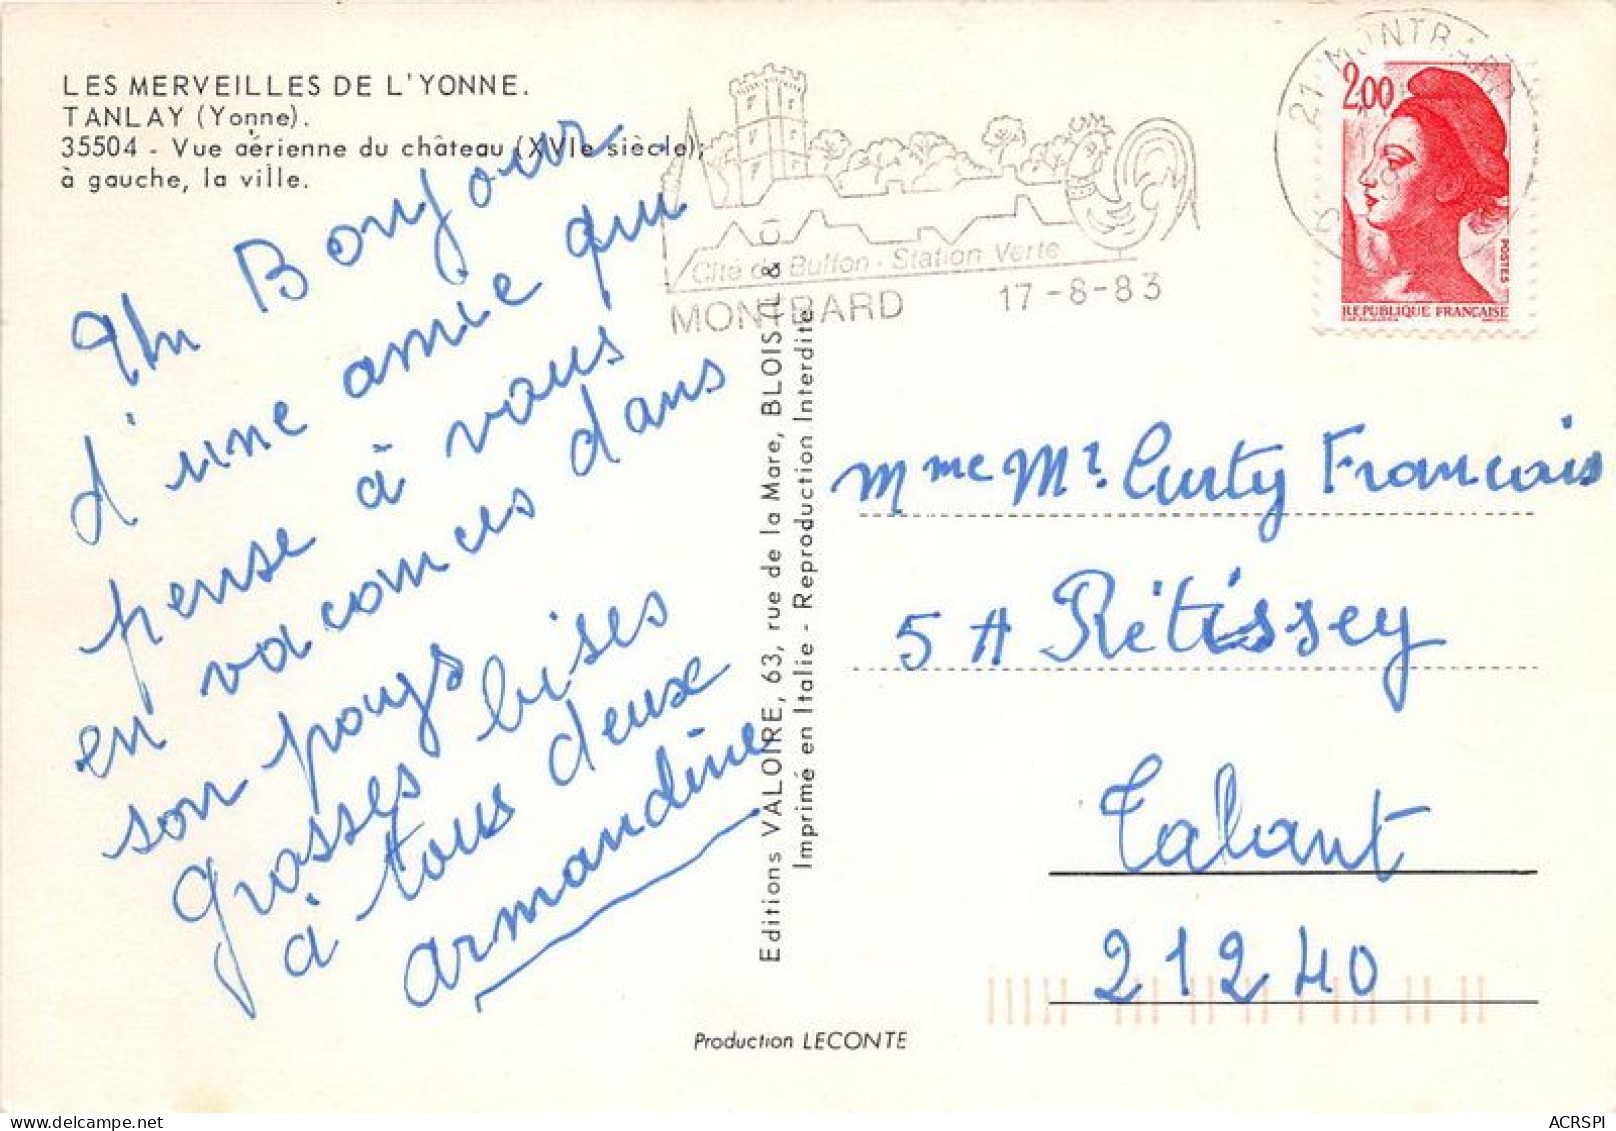 LES MERVEILLES DE L'YONNE.
TANLAY (Yonne).
35504 - Vue aérienne du château (XVIe siècle);
à gauche, la ville.
Un Bonjour
d'une amie qui
pense à vous
en vacances dans
son pays
grosses bises
à tous deux
armandine
Cité de Buffon - Station Verte
MONTBARD 17-8-83
21 MONTBARD
2,00
POSTES
REPUBLIQUE FRANÇAISE
Editions VALOIRE, 63, rue de la Mare, BLOIS
Imprimé en Italie - Reproduction Interdite
Mme Mr Curty Francois
5 A Rétissey
Talant
21240
Production LECONTE
ACRSPI